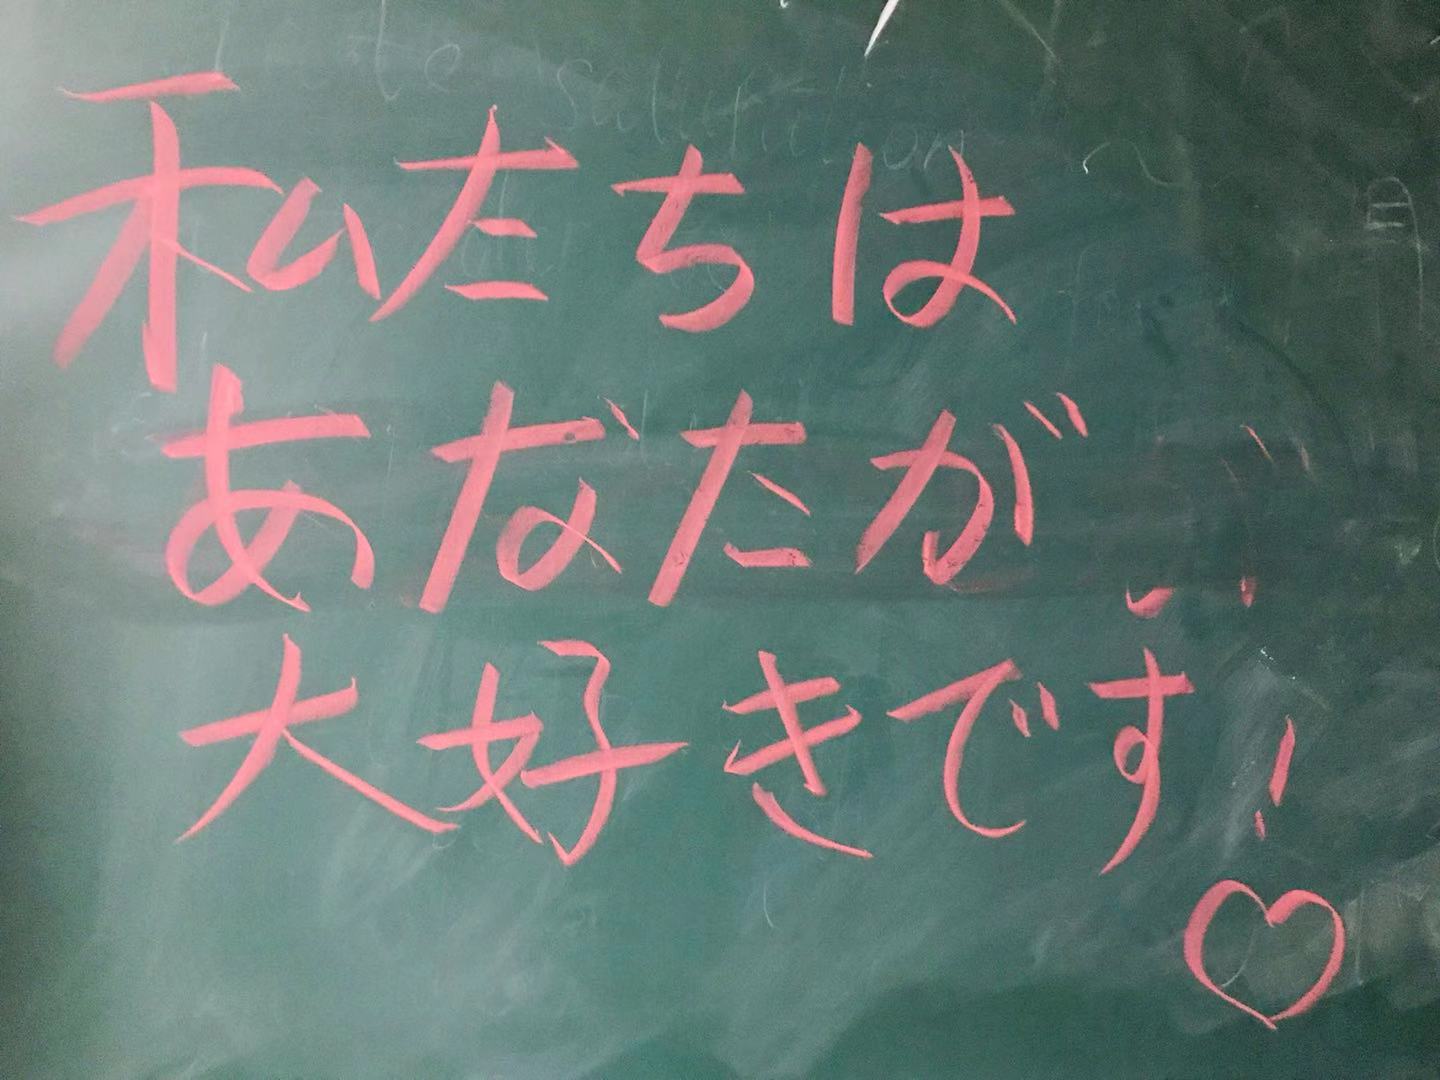 私たちは
あなたが
大好きです!
♡